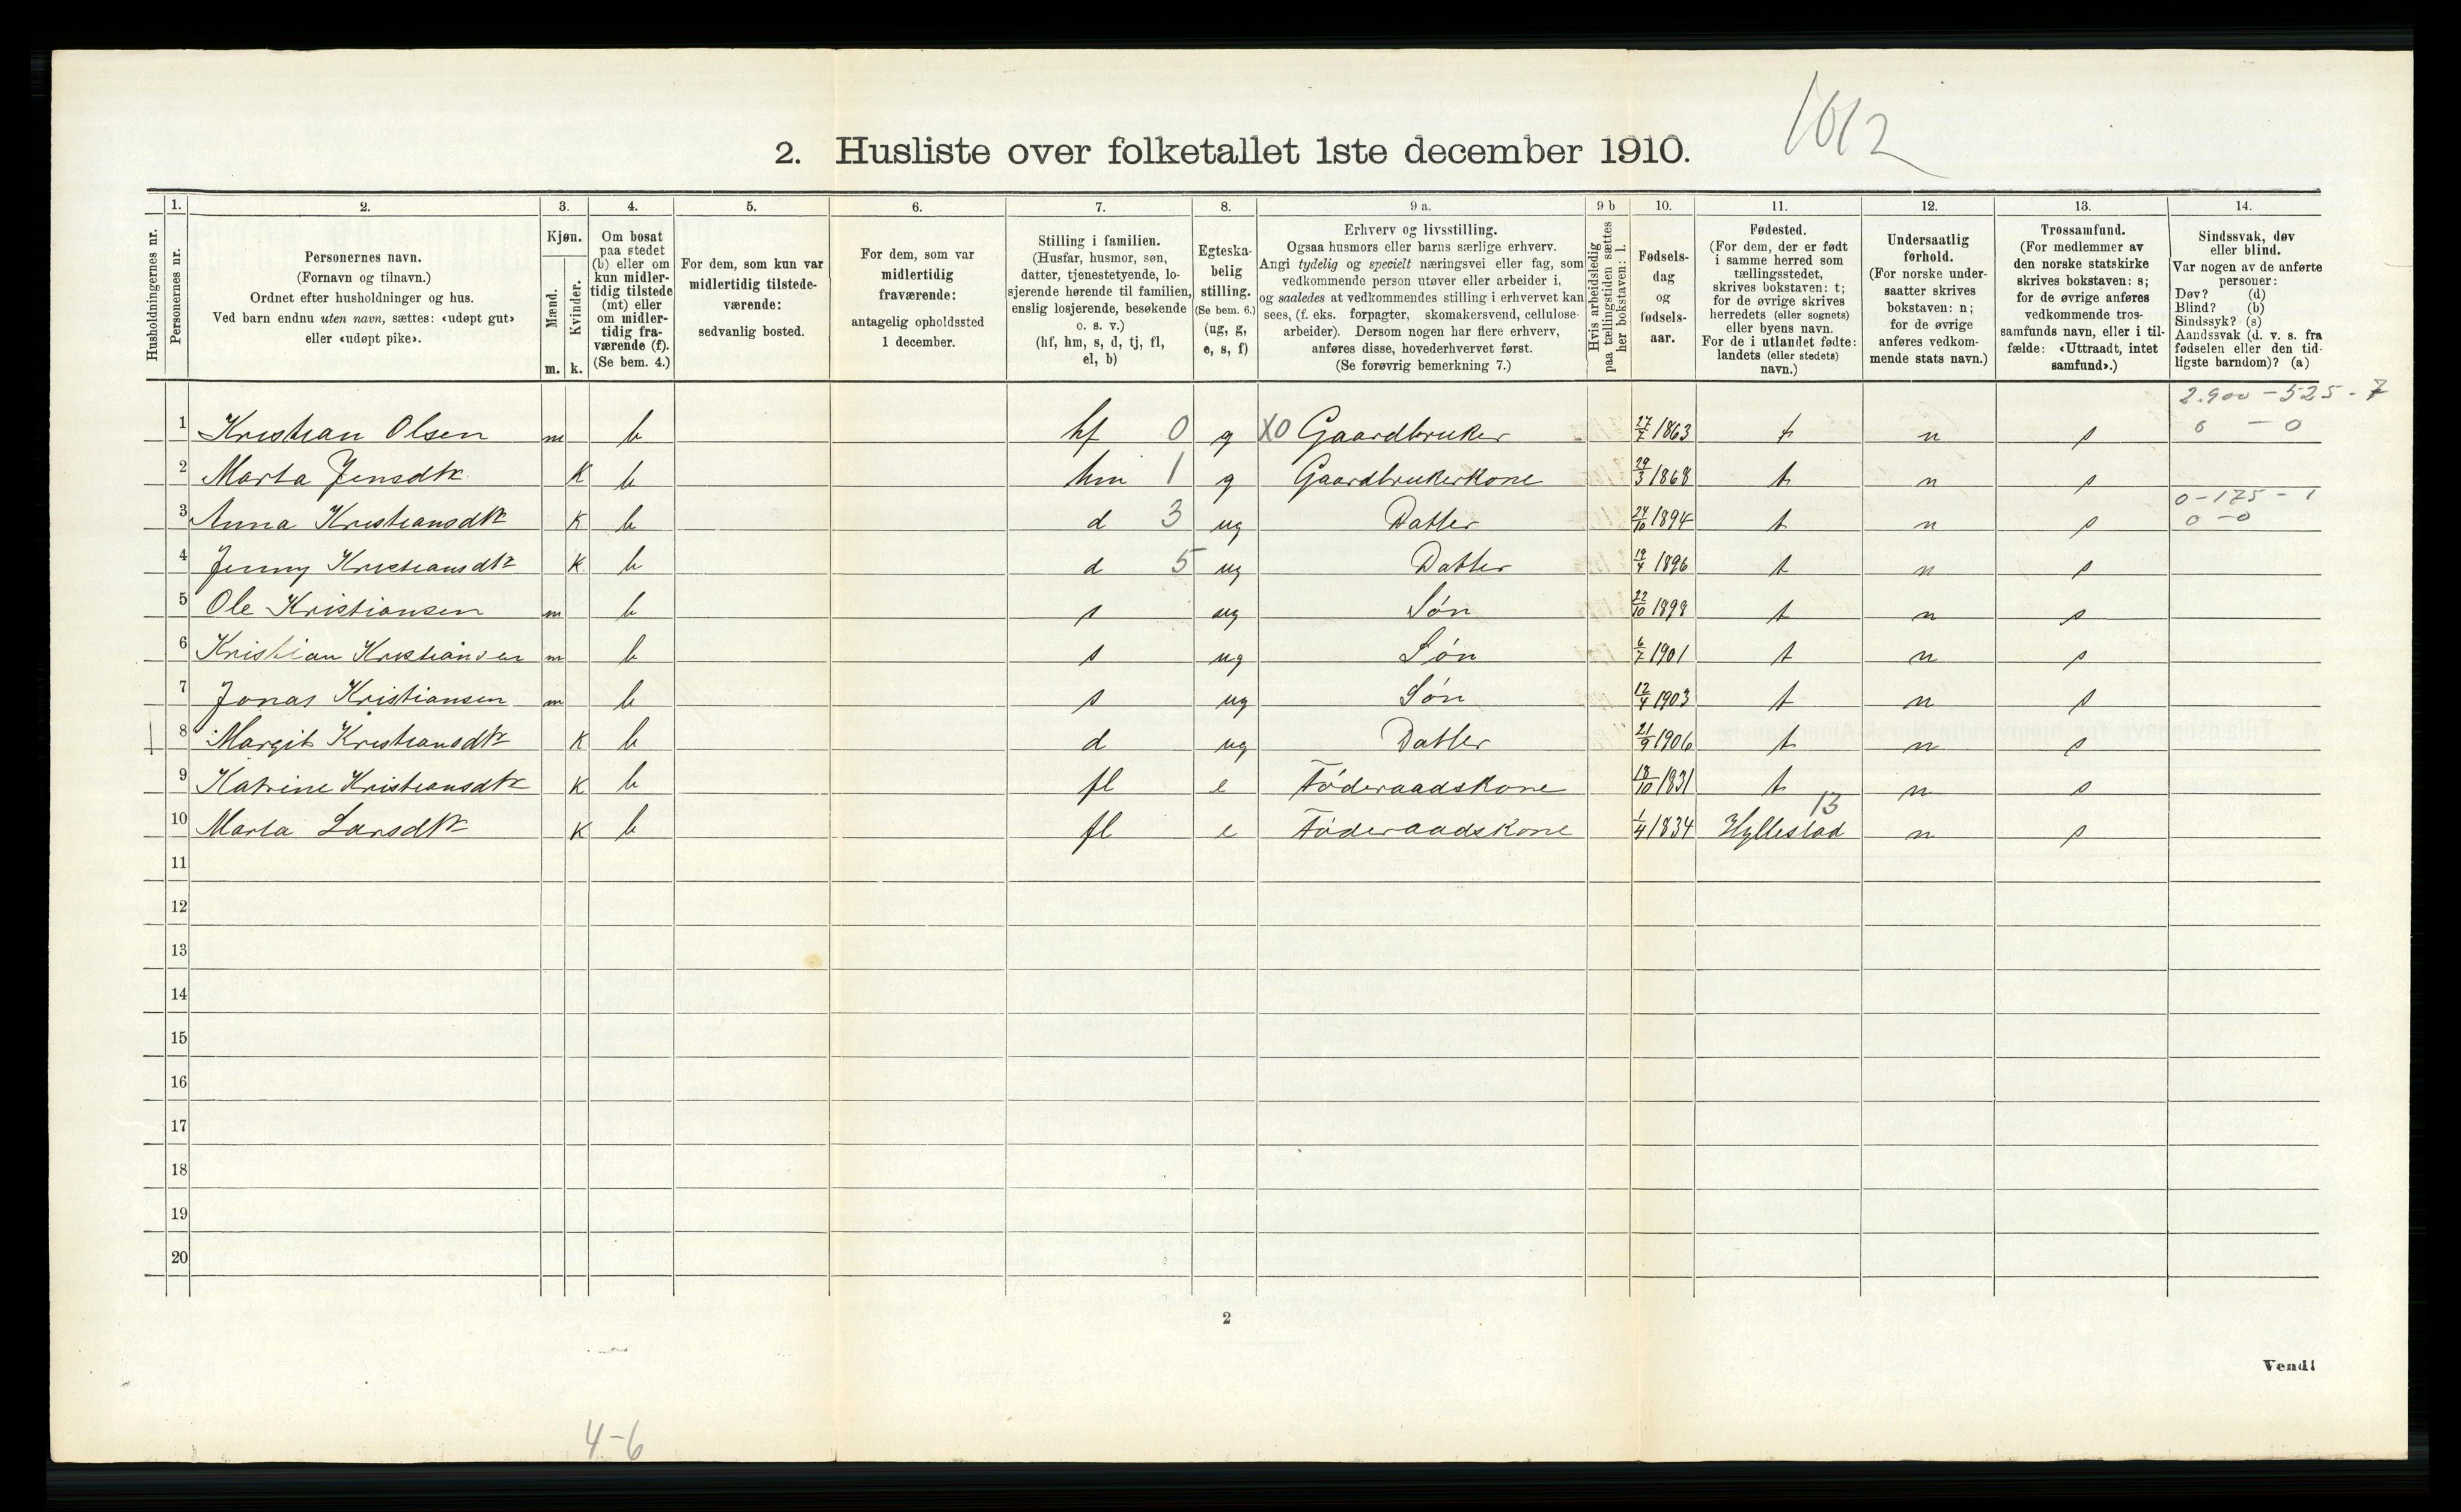 1612
2. Husliste over folketallet 1ste december 1910.
Husholdningernes nr.
1. Personernes nr.
2. Personernes navn.
(Fornavn og tilnavn.)
Ordnet efter husholdninger og hus.
Ved barn endnu uten navn, sættes: «udøpt gut»
eller «udøpt pike».
3. Kjøn.
Mænd. Kvinder.
m. k.
4. Om bosat
paa stedet
(b) eller om
kun midler-
tidig tilstede
(mt) eller
om midler-
tidig fra-
værende (f).
(Se bem. 4.)
5. For dem, som kun var
midlertidig tilstede-
værende:
sedvanlig bosted.
6. For dem, som var
midlertidig
fraværende:
antagelig opholdssted
1 december.
7. Stilling i familien.
(Husfar, husmor, søn,
datter, tjenestetyende, lo-
sjerende hørende til familien,
enslig losjerende, besøkende
o. s. v.)
(hf, hm, s, d, tj, fl,
el, b)
8. Egteska-
belig
stilling.
(Se bem. 6.)
(ug, g,
e, s, f)
9 a. Erhverv og livsstilling.
Ogsaa husmors eller barns særlige erhverv.
Angi tydelig og specielt næringsvei eller fag, som
vedkommende person utøver eller arbeider i,
og saaledes at vedkommendes stilling i erhvervet kan
sees, (f. eks. forpagter, skomakersvend, cellulose-
arbeider). Dersom nogen har flere erhverv,
anføres disse, hovederhvervet først.
(Se forøvrig bemerkning 7.)
9 b Hvis arbeidsledig
paa tællingstiden sættes
her bokstaven: l.
10. Fødsels-
dag
og
fødsels-
aar.
11. Fødested.
(For dem, der er født
i samme herred som
tællingsstedet,
skrives bokstaven: t;
for de øvrige skrives
herredets (eller sognets)
eller byens navn.
For de i utlandet fødte:
landets (eller stedets)
navn.)
12. Undersaatlig
forhold.
(For norske under-
saatter skrives
bokstaven: n;
for de øvrige
anføres vedkom-
mende stats navn.)
13. Trossamfund.
(For medlemmer av
den norske statskirke
skrives bokstaven: s;
for de øvrige anføres
vedkommende tros-
samfunds navn, eller i til-
fælde: «Uttraadt, intet
samfund».)
14. Sindssvak, døv
eller blind.
Var nogen av de anførte
personer:
Døv? (d)
Blind? (b)
Sindssyk? (s)
Aandssvak (d. v. s. fra
fødselen eller den tid-
ligste barndom)? (a)
2.900 - 525 - 7
1 Kristian Olsen m b hf 0 g X0 Gaardbruker 27/7 1863 t n s 0 - 0
2 Marta Jensdtr K b hm 1 g Gaardbrukerkone 29/3 1868 t n s
0 - 175 - 1
3 Anna Kristiansdtr K b d 3 ug Datter 24/10 1894 t n s 0 - 0
4 Jenny Kristiansdtr K b d 5 ug Datter 19/4 1896 t n s
5 Ole Kristiansen m b s ug Søn 22/10 1898 t n s
6 Kristian Kristiansen m b s ug Søn 6/7 1901 t n s
7 Jonas Kristiansen m b s ug Søn 12/4 1903 t n s
8 Margit Kristiansdtr K b d ug Datter 21/9 1906 t n s
9 Katrine Kristiansdtr K b fl e Føderaadskone 18/10 1831 t n s
13
10 Marta Larsdtr K b fl e Føderaadskone 1/4 1834 Hyllestad n s
11
12
13
14
15
16
17
18
19
20
2
Vend!
4-6